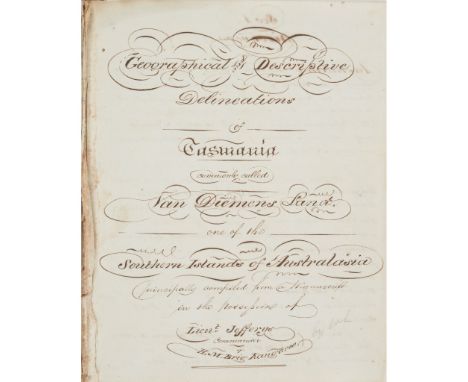 Geographical & Descriptive
Delineations
of
Tasmania
commonly called
Van Diemens Land.
one of the
Southern Islands of Australasia
principally compiled from Documents
in the possession of
Lieut. Jeffreys
Commander
H.M. Brig Kangaroo.